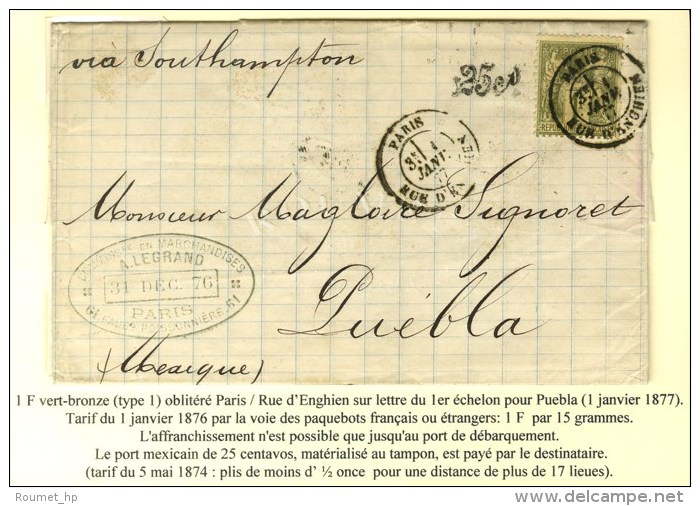 via Southampton
25cs
PARIS
3E 1
JANV.
RUE D'ENGHIEN
PARIS
3E 1
JANV.
77
RUE D'EN
Monsieur Magloire Signoret
Puebla
(Mexique)
EN MARCHANDISES
A. LEGRAND
31 DEC. 76
PARIS
61 POISSONNIÈRE 61
1 F vert-bronze (type 1) oblitéré Paris / Rue d'Enghien sur lettre du 1er échelon pour Puebla (1 janvier 1877).
Tarif du 1 janvier 1876 par la voie des paquebots français ou étrangers: 1 F par 15 grammes.
L'affranchissement n'est possible que jusqu'au port de débarquement.
Le port mexicain de 25 centavos, matérialisé au tampon, est payé par le destinataire.
(tarif du 5 mai 1874 : plis de moins d' ½ once pour une distance de plus de 17 lieues).
Roumet_hp
delcampe.net